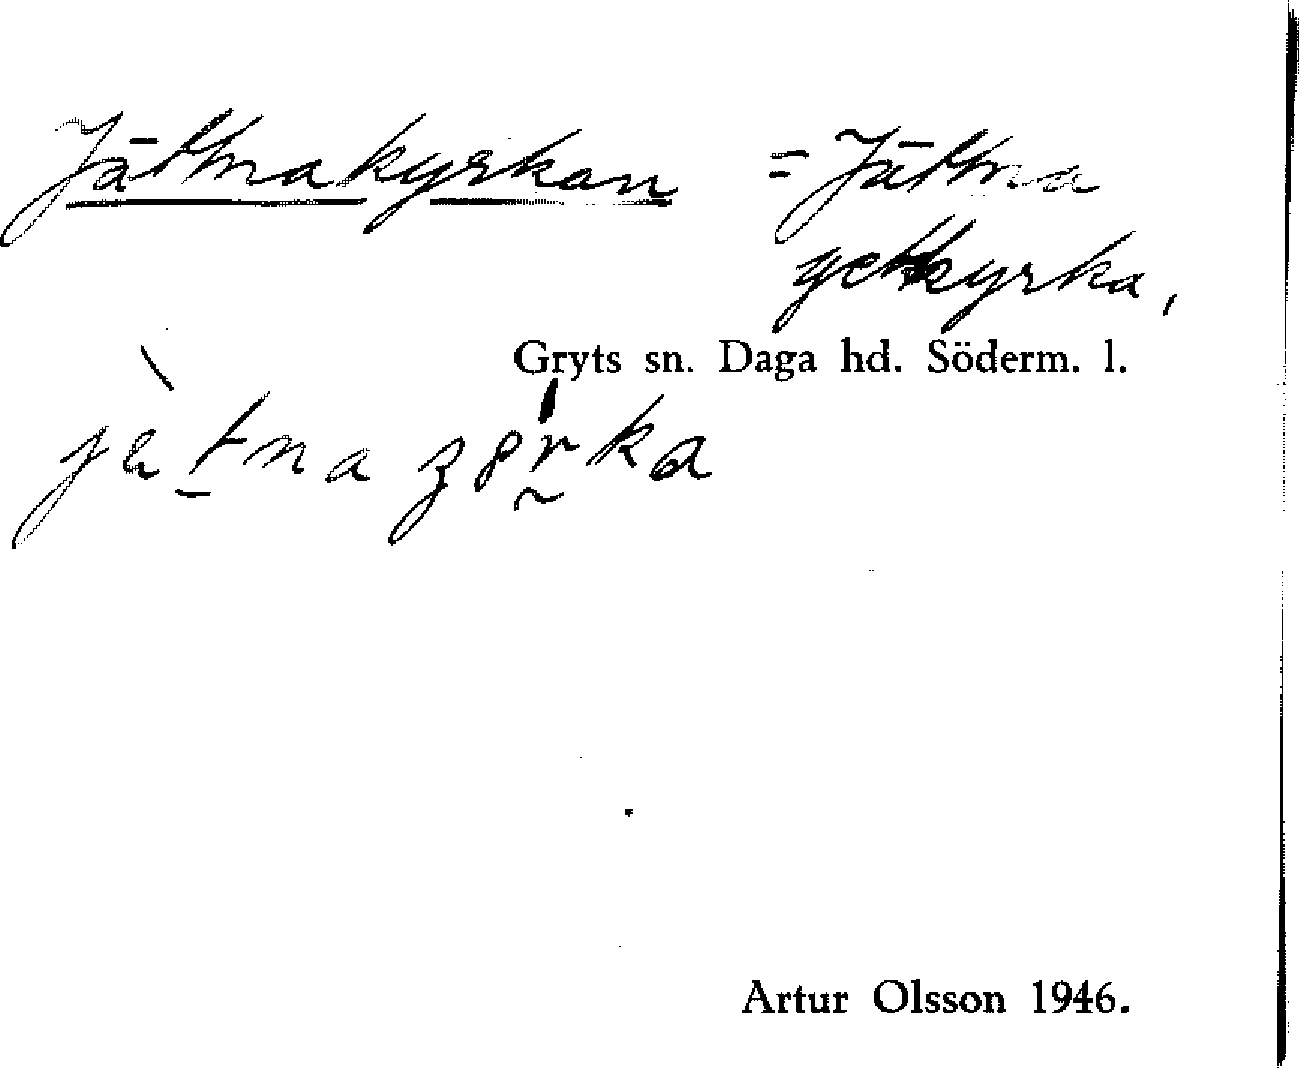 Jättnakyrkan = Jättna
gettkyrka,
Gryts sn. Daga hd. Söderm. l.
Artur Olsson 1946.